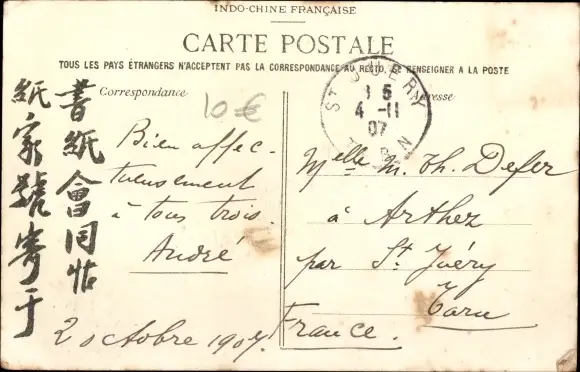 INDO-CHINE FRANÇAISE
CARTE POSTALE
TOUS LES PAYS ÉTRANGERS N'ACCEPTENT PAS LA CORRESPONDANCE AU RECTO, SE RENSEIGNER A LA POSTE
Correspondance
Adresse
10 €
ST JUÉRY
5
4-11
07
TARN
Bien affec-
tueusement
à tous trois.
André
2 octobre 1907.
Melle M. Th. Defer
à Arthez
par St. Juéry
Tarn
France.
書紙會同帖
紙家號寄于